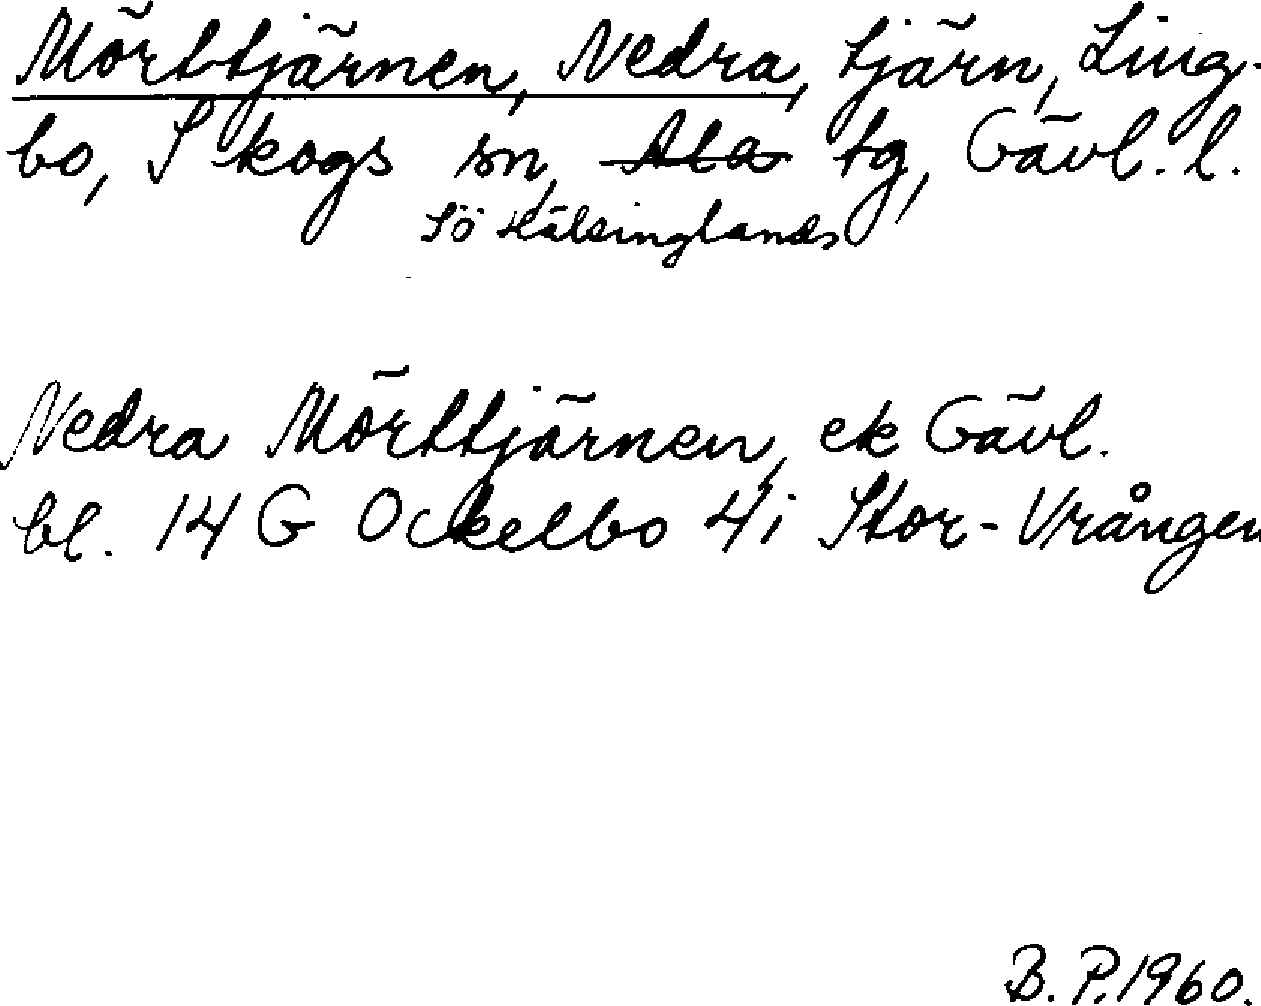 Mörttjärnen, Nedra, tjärn, Ling-
bo, Skogs sn, Ala tg, Gävl. l.
Sö Hälsinglands
Nedra Mörttjärnen, ek Gävl.
bl. 14 G Ockelbo 4i Stor-Vrången
B. P. 1960.